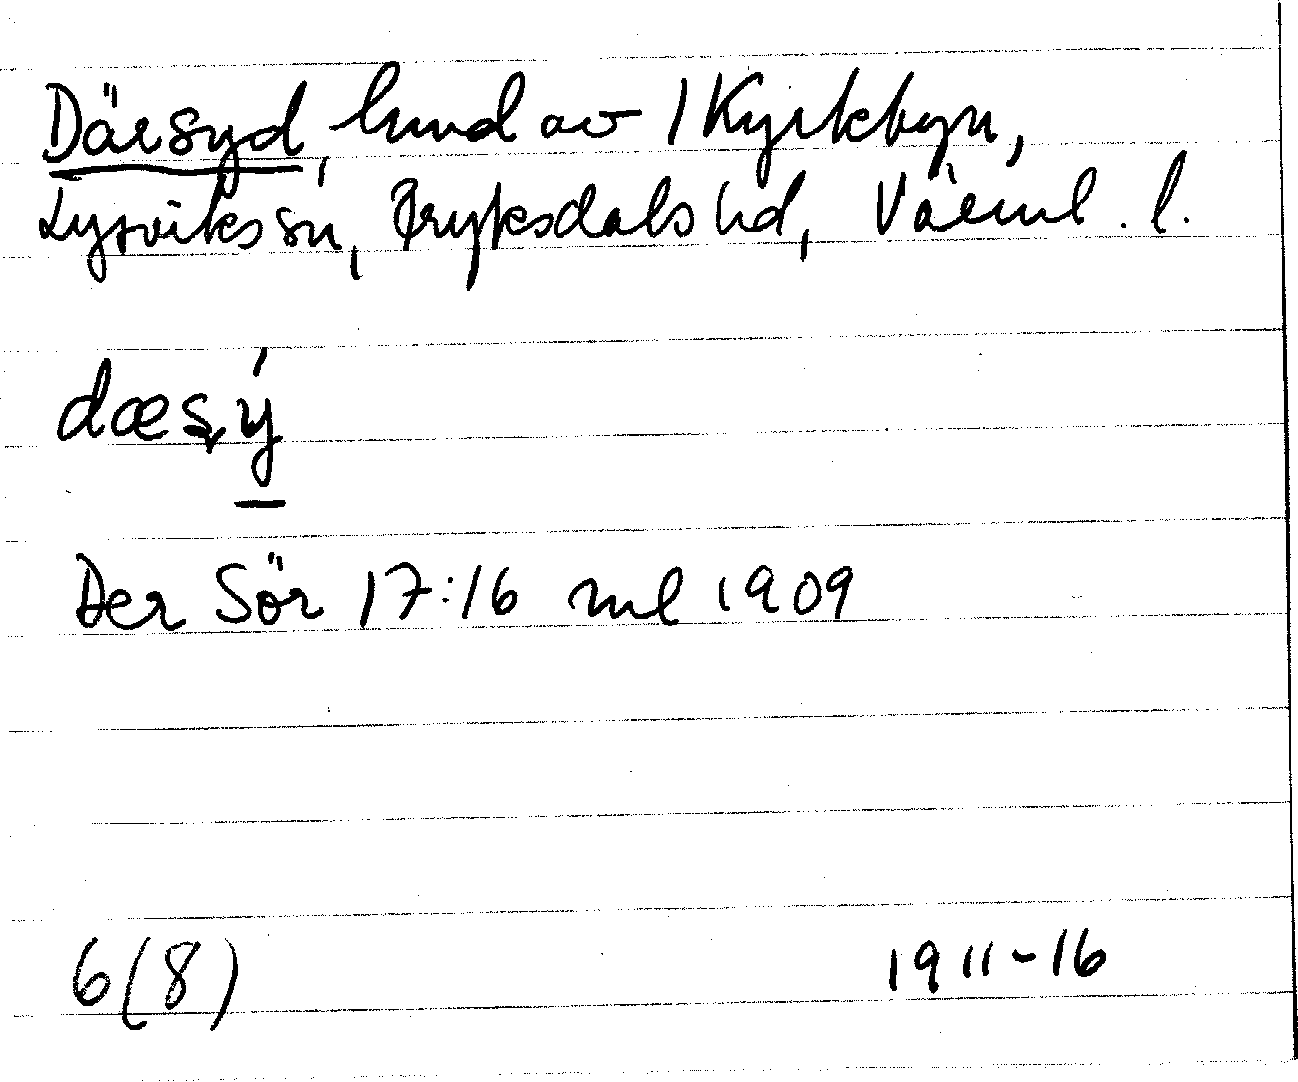 Därsyd, hmd av 1 Kyrkbyn,
Lysviks sn, Fryksdals hd, Värml. l.
dæʂý
Der Sör 17:16 ml 1909
6(8)
1911-16